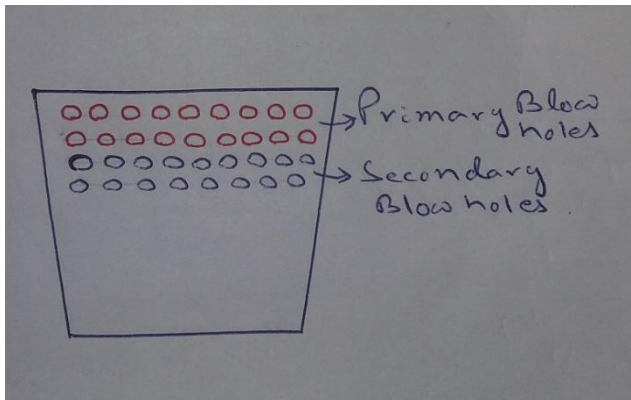 Primary Blow
holes
Secondary
Blow holes.